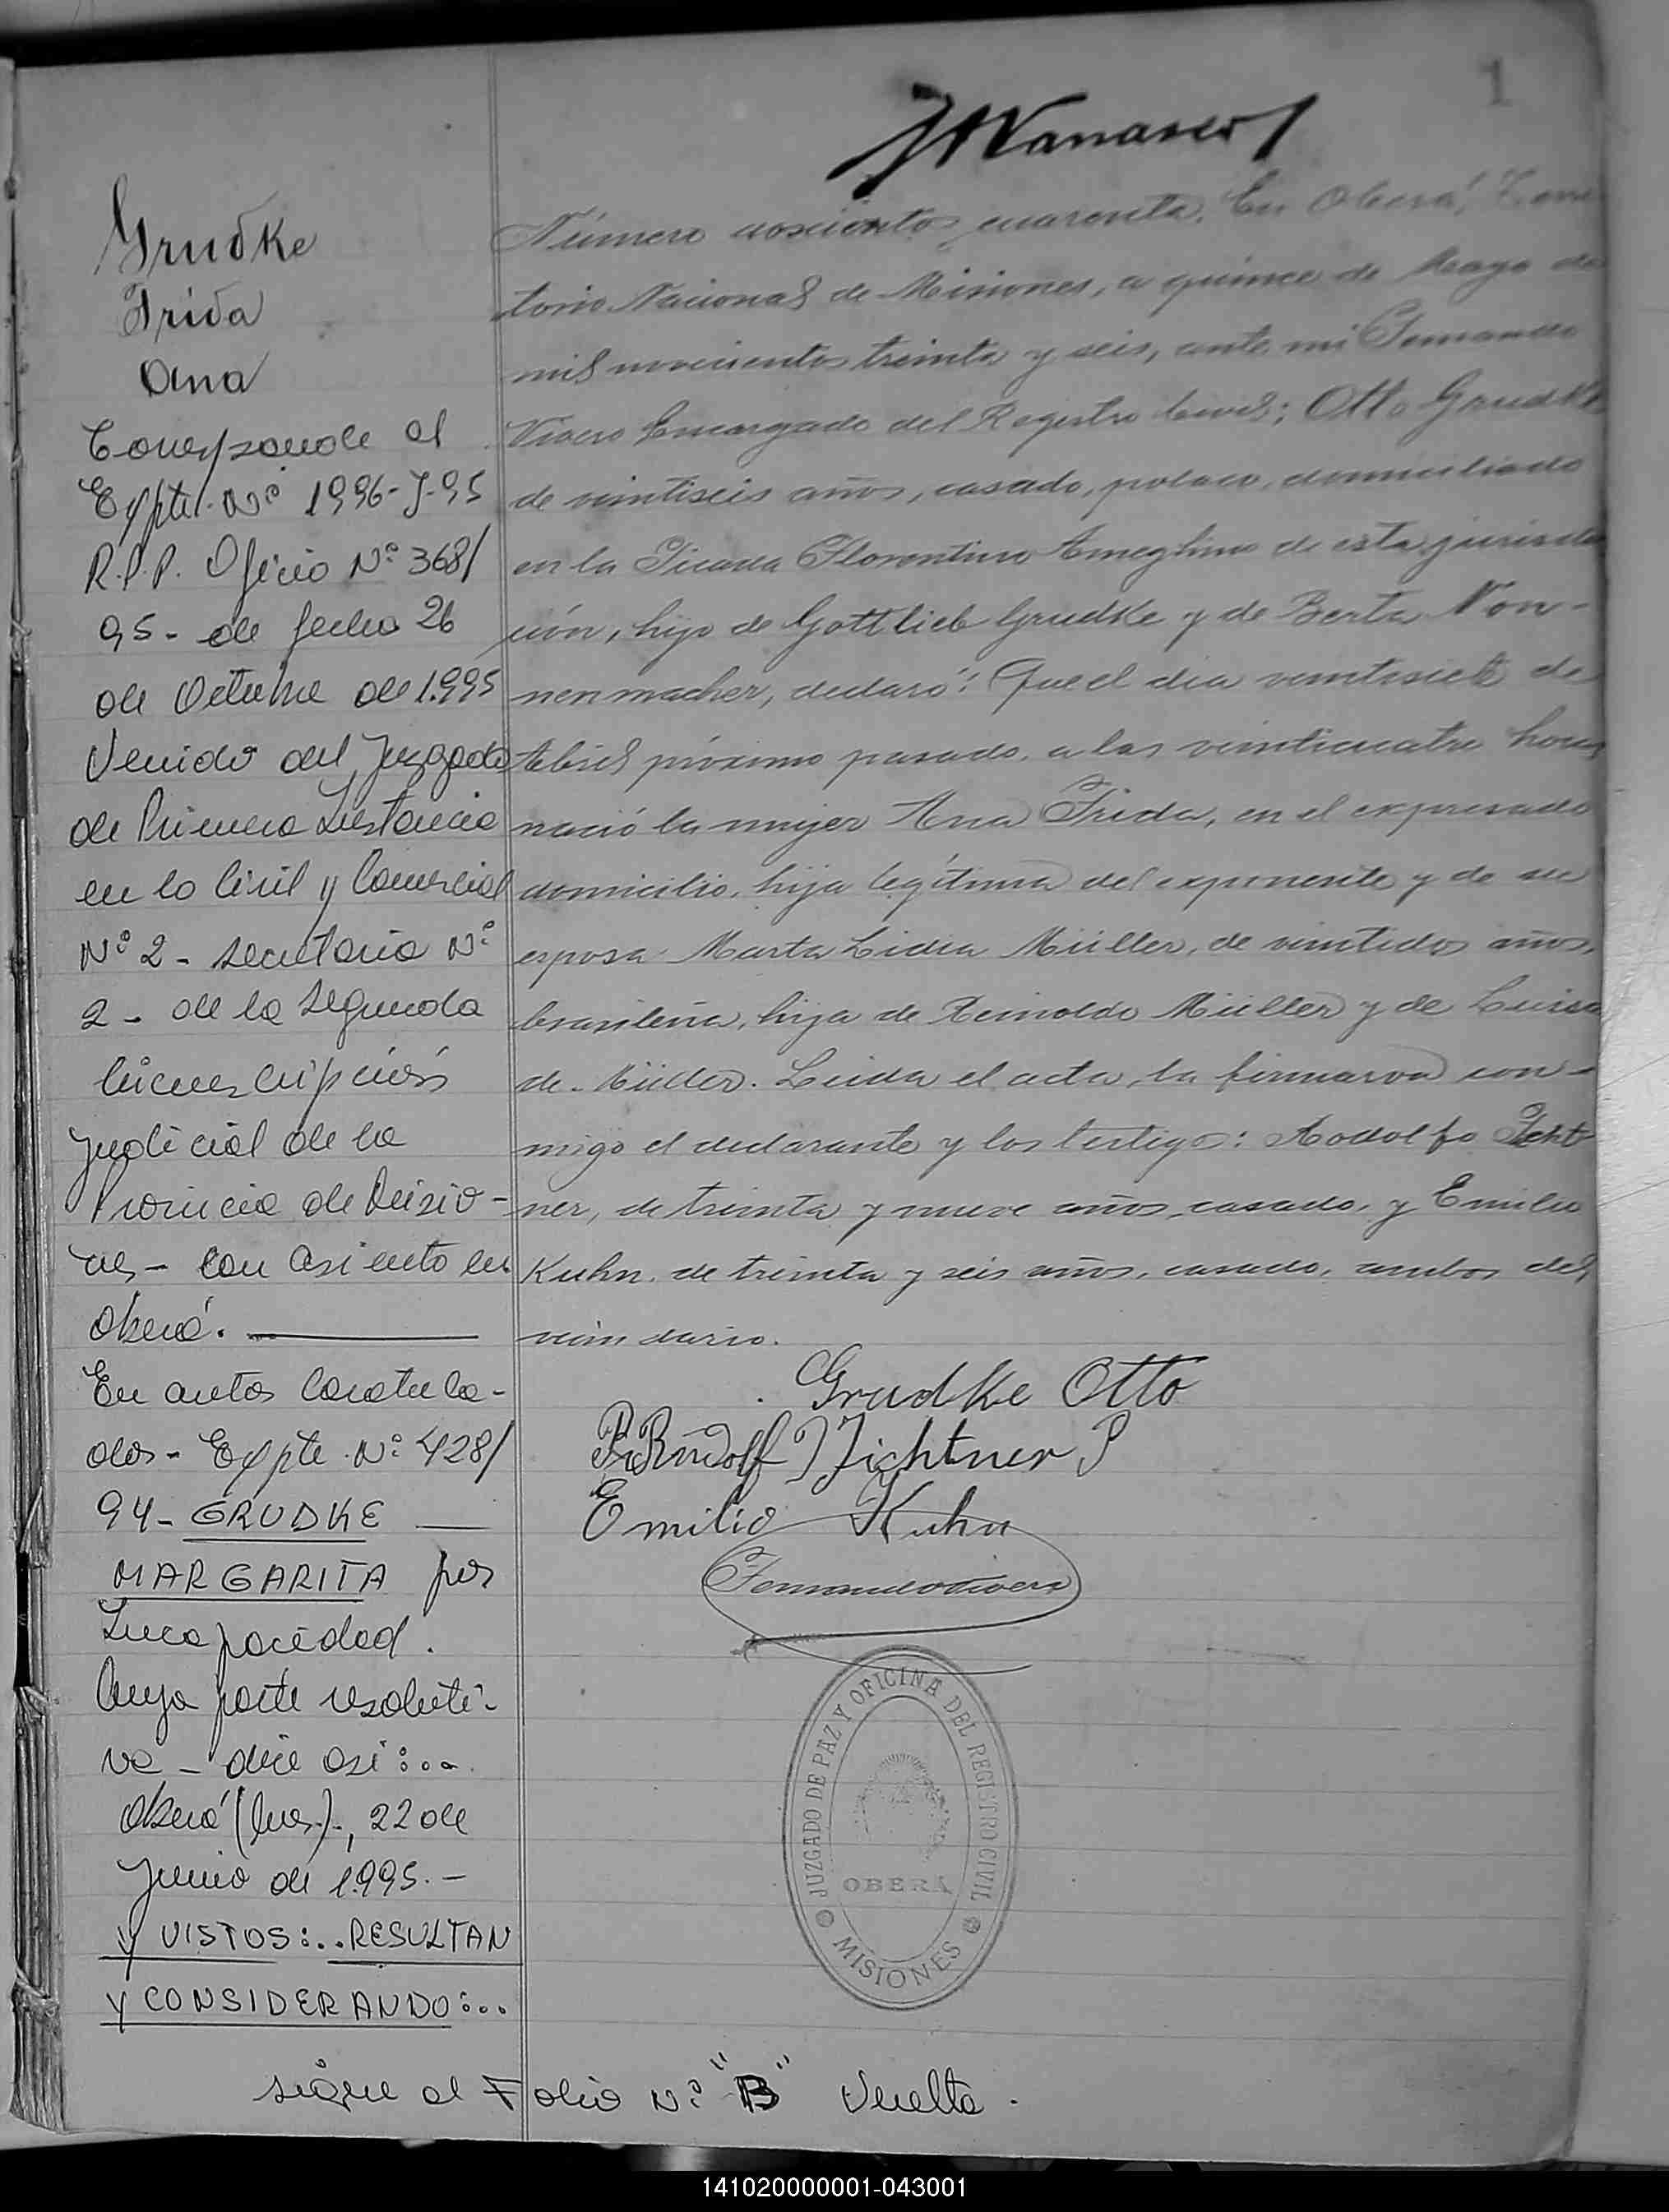 1
Grudke
Frida
Ana
Corresponde al
Expte. Nº 1996-J-95
R.P.P. Oficio Nº 368/
95- de fecha 26
de Octubre de 1.995
Venido del Juzgado
de Primera Instancia
en lo Civil y Comercial
Nº 2 - Secretaria Nº
2 - de la Segunda
Circunscripción
Judicial de la
Provincia de Misio-
nes - con asiento en
Oberá.
En autos caratula-
dos - Expte. Nº 428/
94 - GRUDKE
MARGARITA por
Incapacidad.
Cuya parte resoluti-
va - dice asi:...
Oberá (Mnes.)., 22 de
Junio de 1995.-
Y VISTOS:..RESULTAN
Y CONSIDERANDO:...
Número doscientos cuarenta. En Oberá, Terri
torio Nacional de Misiones, a quince de Mayo de
mil novecientos treinta y seis, ante mi Fernando
Vivero Encargado del Registro Civil; Otto Grudke
de veintiseis años, casado, polaco, domiciliado
en la Picada Florentino Ameghino de esta jurisdic
ción, hijo de Gottlieb Grudke y de Berta Non-
nenmacher, declaró: Que el dia veintisiete de
Abril próximo pasado, a las veinticuatro horas
nació la mujer Ana Frida, en el expresado
domicilio, hija legítima del exponente y de su
esposa Marta Lidia Müller, de veintidos años,
brasileña, hija de Reinoldo Müller y de Luisa
de Müller. Leida el acta, la firmaron con-
migo el declarante y los testigos: Rodolfo Ficht
ner, de treinta y nueve años, casado, y Emilio
Kuhn, de treinta y seis años, casado, ambos del
vecindario.
Grudke Otto
Rudolf Fichtner
Emilio Kuhn
Fernando Vivero
JUZGADO DE PAZ Y OFICINA DEL REGISTRO CIVIL
OBERÁ
MISIONES
sigue al Folio Nº "B" Vuelta.
141020000001-043001